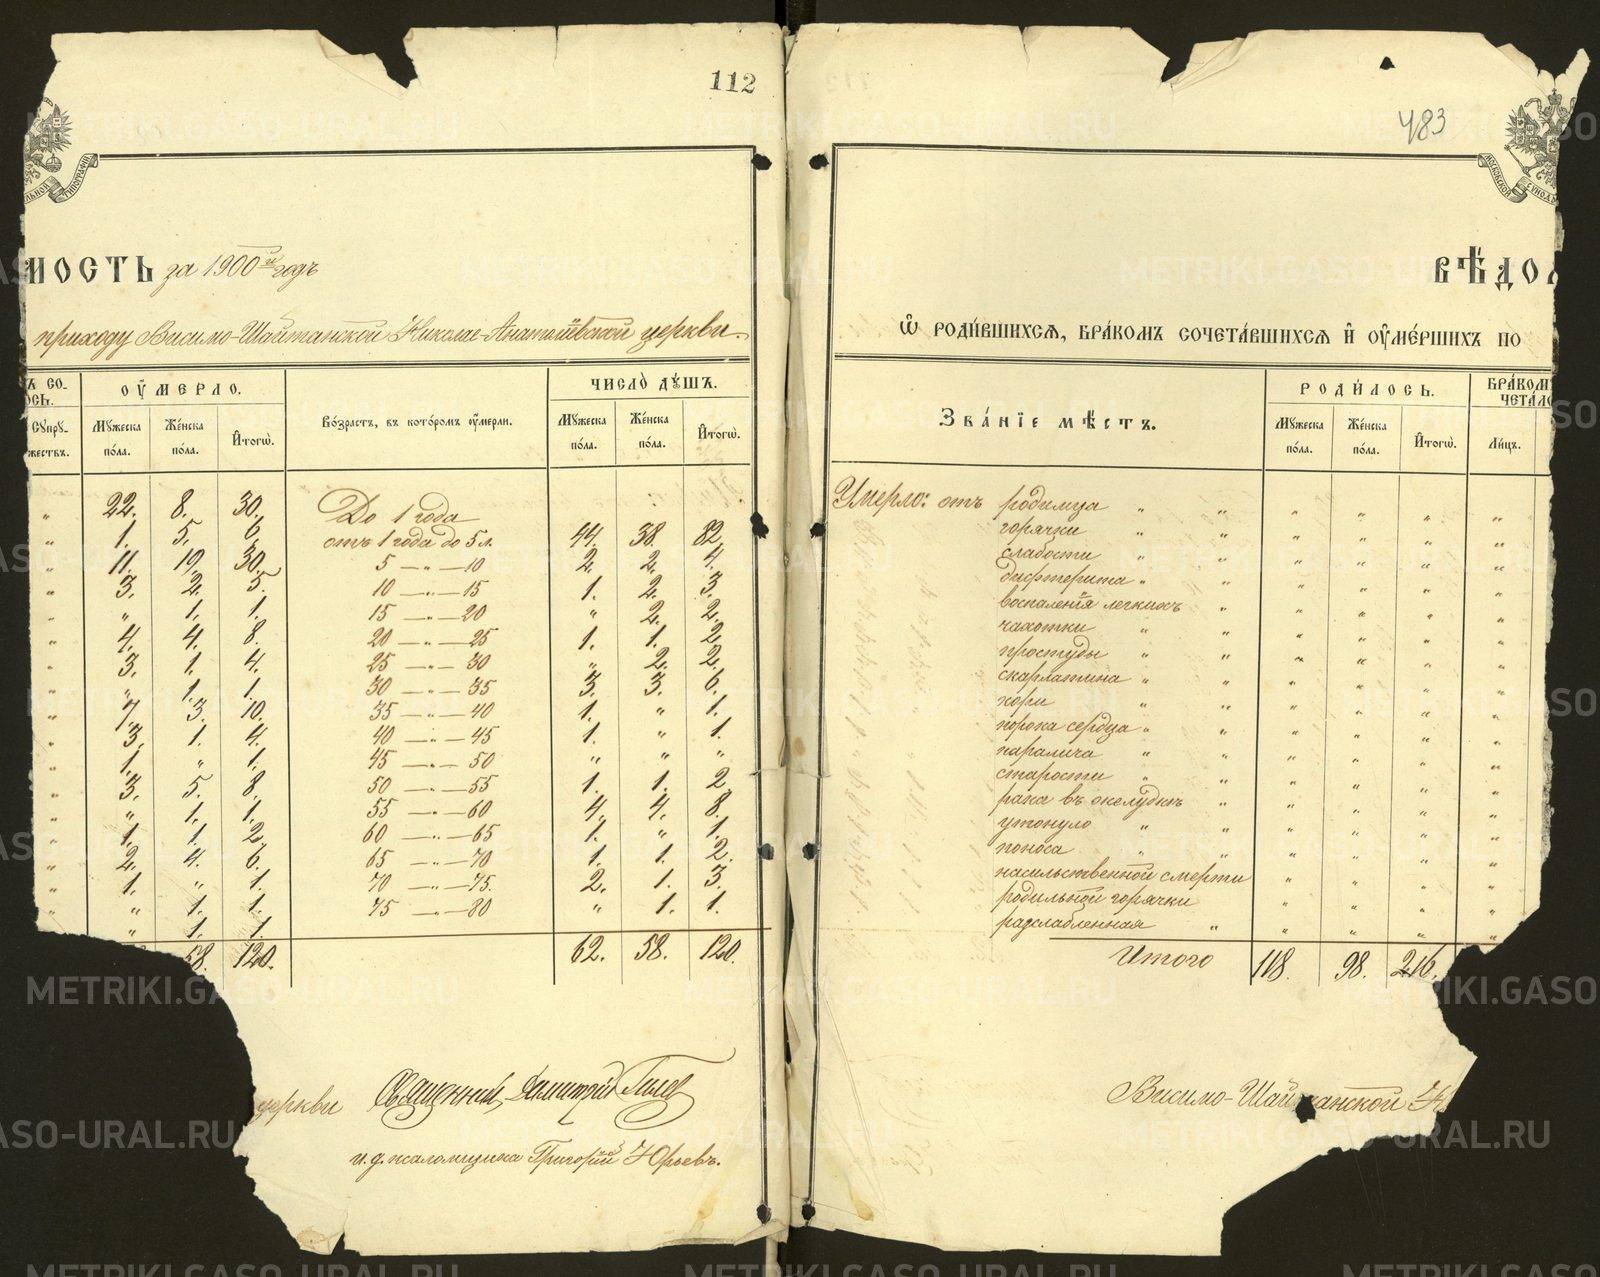 112
МОСТЬ за 1900й годъ
приходу Висимо-Шайтанской Николае-Анатоліевской церкви.
ОУМЕРЛО. ЧИСЛО ДУШЪ.
Супружествъ. Мужеска пола. Женска пола. Итогѡ. Возрастъ, въ которомъ оумерли. Мужеска пола. Женска пола. Итогѡ.
„ 22. 8. 30. До 1 года
„ 1. 5. 6. отъ 1 года до 5 л. 44. 38. 82.
„ 11. 19. 30. 5 — „ — 10 2. 2. 4.
„ 3. 2. 5. 10 — „ — 15 1. 2. 3.
„ „ 1. 1. 15 — „ — 20 „ 2. 2.
„ 4. 4. 8. 20 — „ — 25 1. 1. 2.
„ 3. 1. 4. 25 — „ — 30 „ 2. 2.
„ „ 1. 1. 30 — „ — 35 3. 3. 6.
„ 7. 3. 10. 35 — „ — 40 1. „ 1.
„ 3. 1. 4. 40 — „ — 45 1. „ 1.
„ 1. „ 1. 45 — „ — 50 „ „ „
„ 3. 5. 8. 50 — „ — 55 1. 1. 2.
„ „ 1. 1. 55 — „ — 60 4. 4. 8.
„ 1. 1. 2. 60 — „ — 65 1. „ 1.
„ 2. 4. 6. 65 — „ — 70 1. 1. 2.
„ 1. „ 1. 70 — „ — 75. 2. 1. 3.
„ „ 1. 1. 75 — „ — 80 „ 1. 1.
„ 1. 1.
58. 120. 62. 58. 120.
церкви Священникъ Димитрій
и. д. псаломщика Григорій Юрьевъ.
483
МОСКОВСКОЙ
ВѢДО
Ѡ РОДИВШИХСЯ, БРАКОМЪ СОЧЕТАВШИХСЯ И ОУМЕРШИХЪ ПО
Званіе мѣстъ. РОДИЛОСЬ. БРАКОМЪ
Мужеска пола. Женска пола. Итогѡ. Лицъ.
Умерло: отъ родимца „ „ „ „ „ „
горячки „ „ „ „ „ „
слабости „ „ „ „ „ „
дифтерита „ „ „ „ „ „
воспаленія легкихъ „ „ „ „ „
чахотки „ „ „ „ „ „
простуды „ „ „ „ „ „
скарлатина „ „ „ „ „ „
кори „ „ „ „ „ „
порока сердца „ „ „ „ „ „
паралича „ „ „ „ „ „
старости „ „ „ „ „ „
рака въ желудкѣ „ „ „ „ „
утонуло „ „ „ „ „ „
поноса „ „ „ „ „ „
насильственной смерти „ „ „ „
родильной горячки „ „ „ „
разслабленная „ „ „ „ „
Итого 118. 98. 216.
Висимо-Шайтанской Н
METRIKI.GASO-URAL.RU